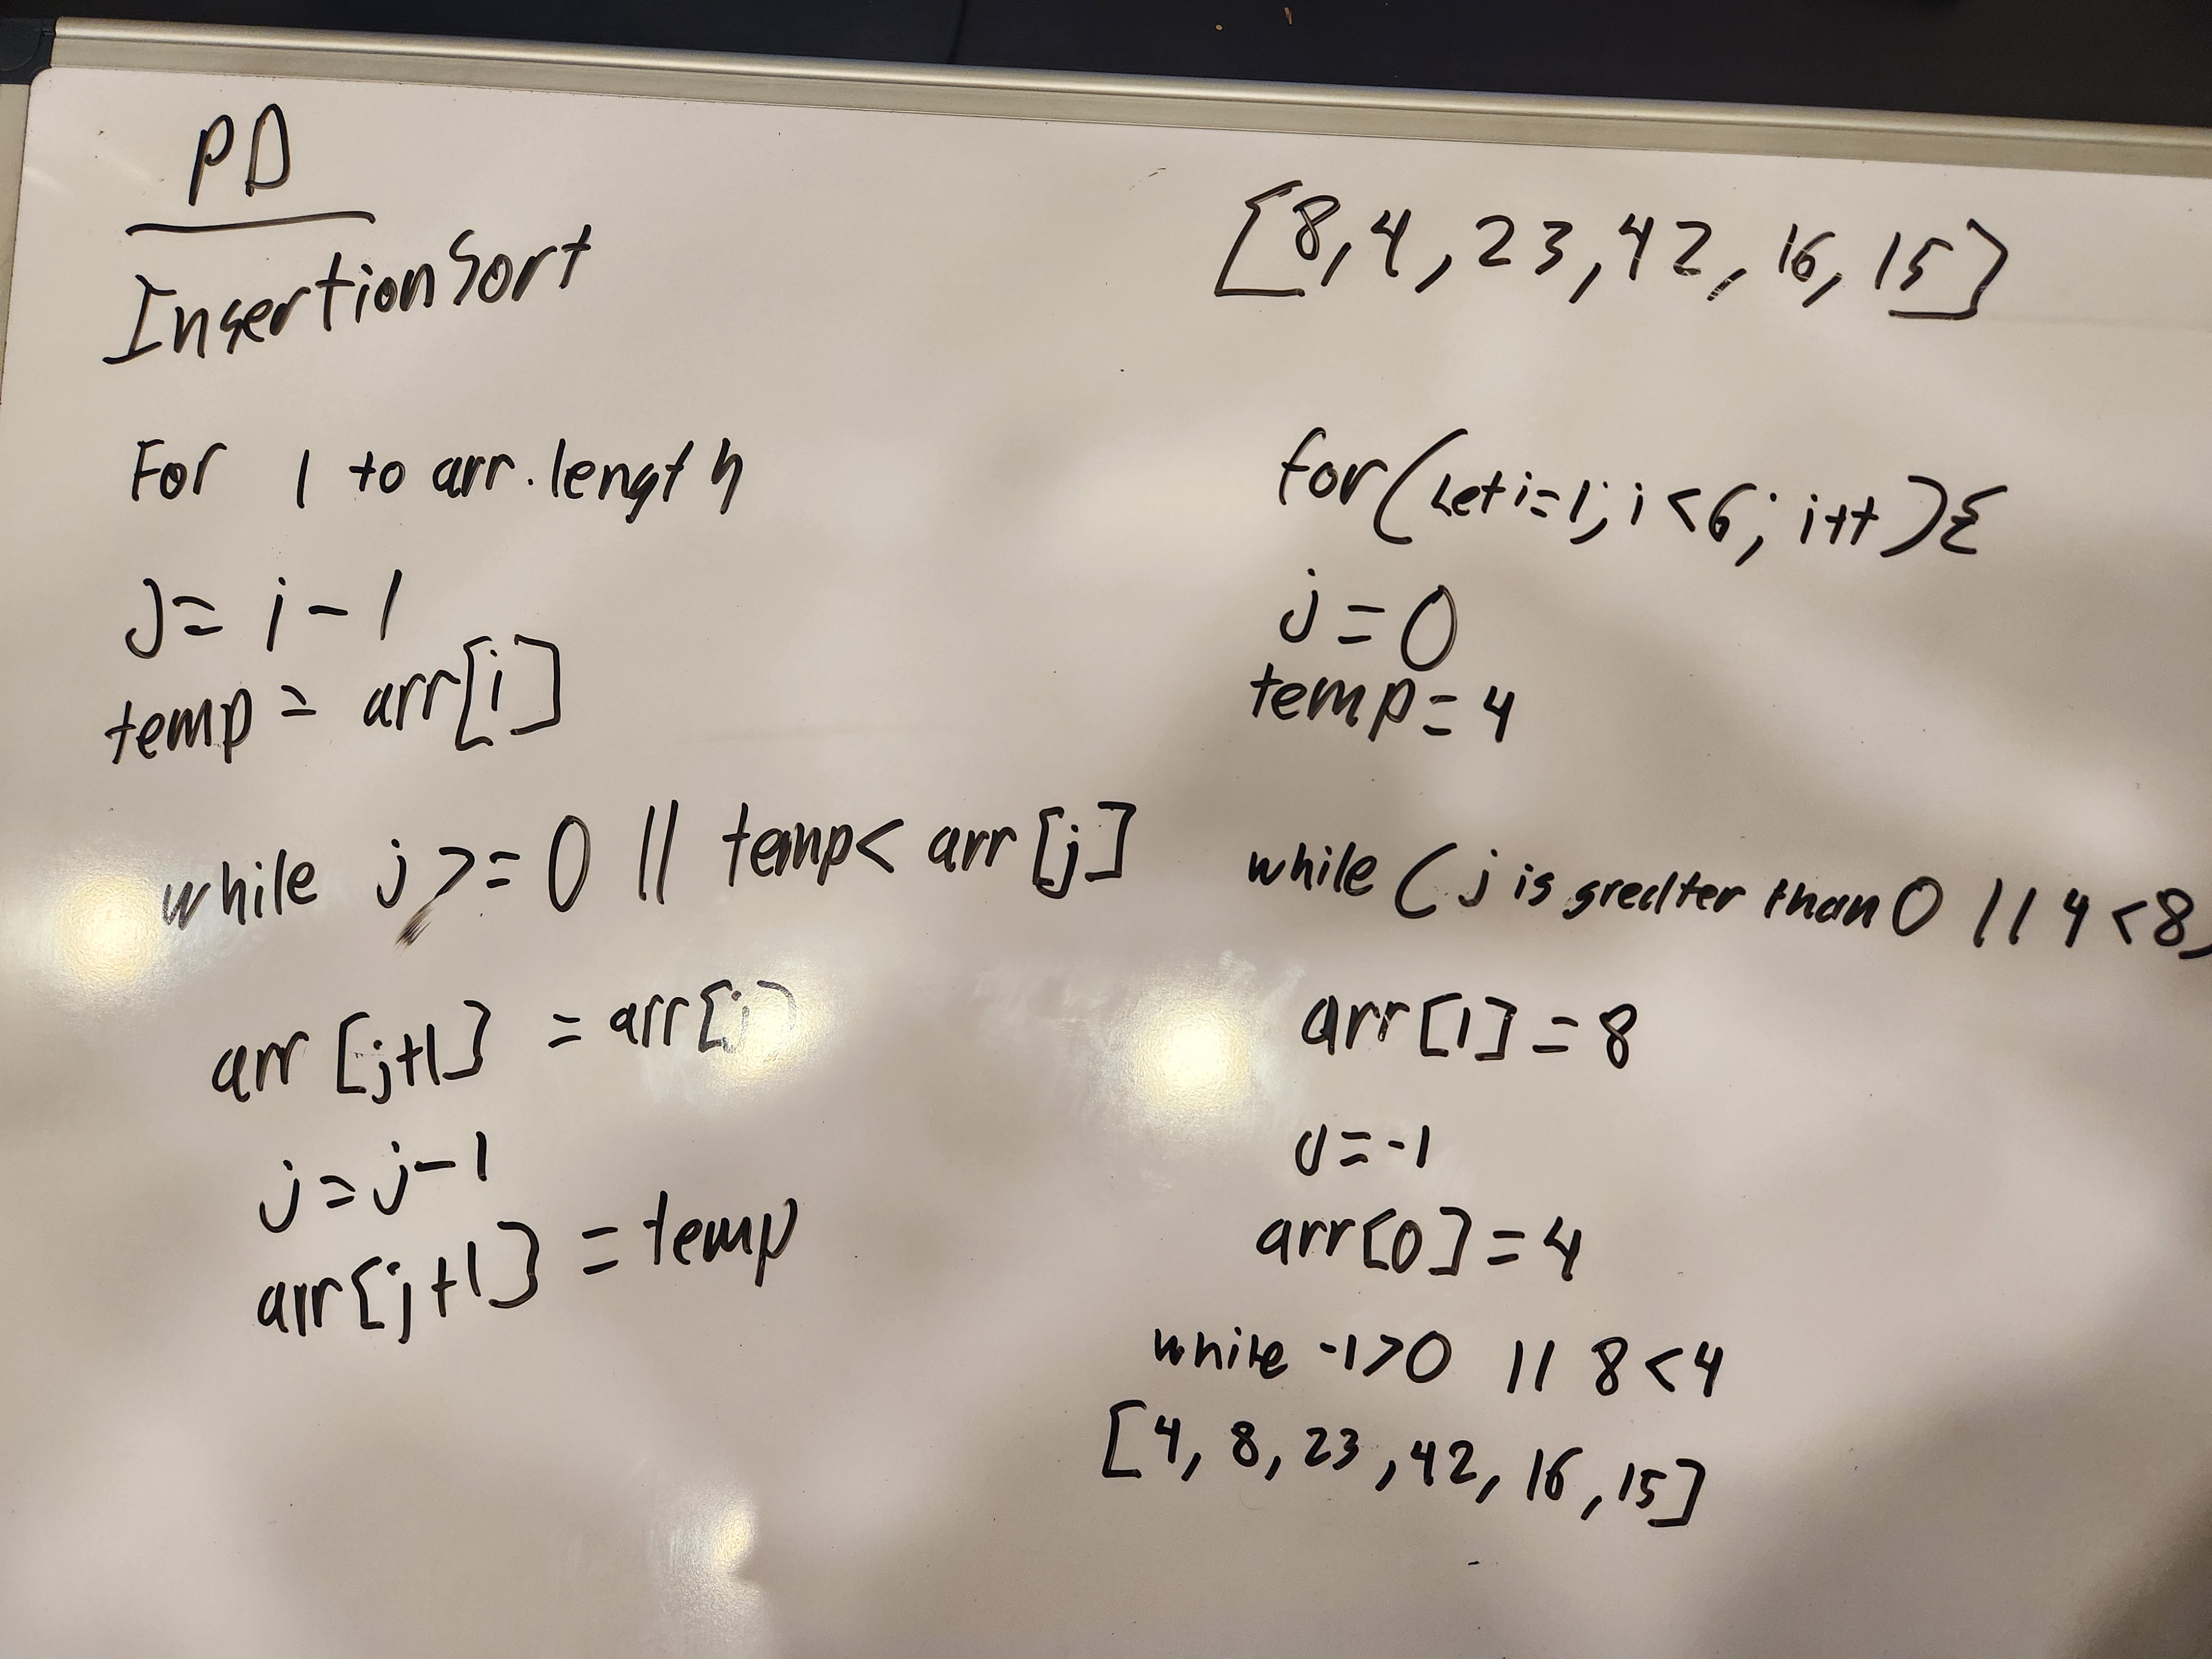 PD
Insertion Sort
For 1 to arr.length
j = i - 1
temp = arr[i]
while j >= 0 || temp < arr[j]
arr[j+1] = arr[j]
j = j - 1
arr[j+1] = temp
[8, 4, 23, 42, 16, 15]
for(let i=1; i<6; i++){
j = 0
temp = 4
while (j is greater than 0 || 4 < 8
arr[1] = 8
j = -1
arr[0] = 4
while -1>0 || 8 < 4
[4, 8, 23, 42, 16, 15]